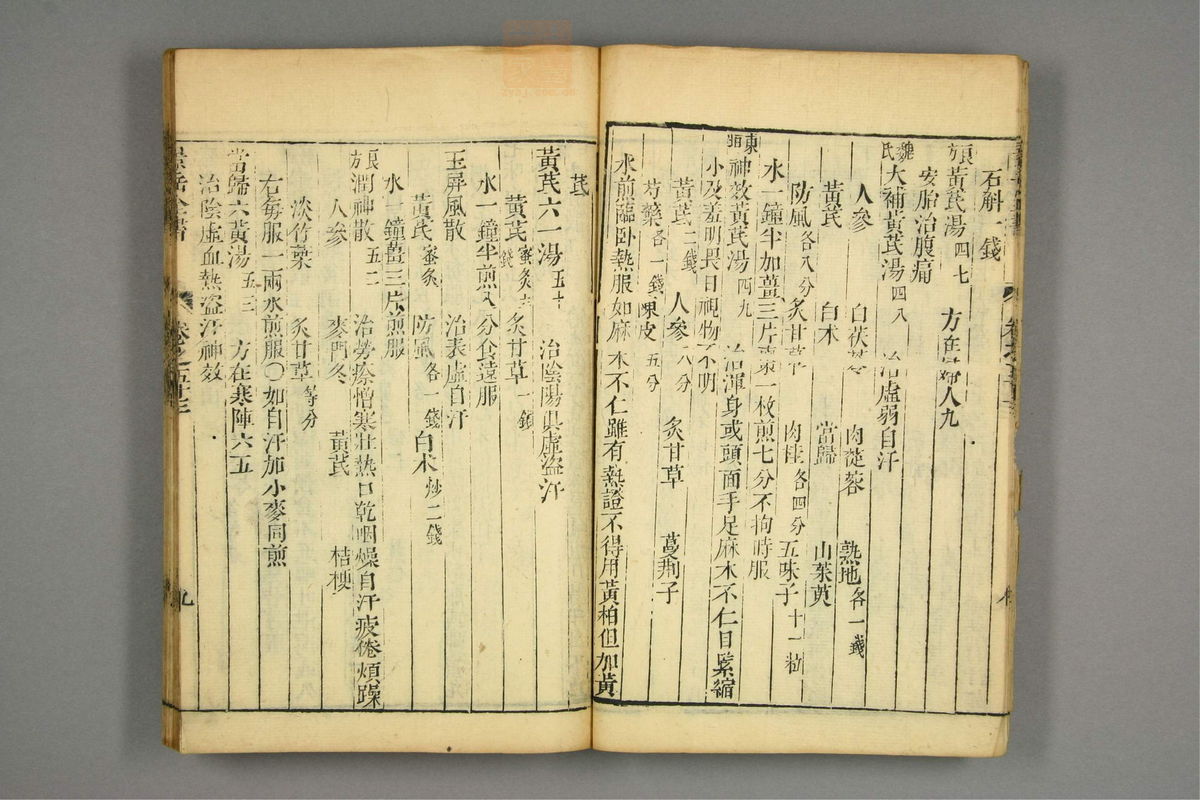 石斛 錢
良方 黃芪湯 四七 方在婦人九
安胎治腹痛
魏氏 大補黃芪湯 四八 治虛弱自汗
人參 白茯苓 肉蓯蓉 熟地 各一錢
黃芪 白朮 當歸 山茱萸
防風 各八分 炙甘草 肉桂 各四分 五味子 十一粒
水一鐘半加薑三片棗一枚煎七分不拘時服
東垣 神效黃芪湯 四九 治渾身或頭面手足麻木不仁目緊縮
小及羞明畏日視物不明
黃芪 二錢 人參 八分 炙甘草 蔓荆子
芍藥 各一錢 陳皮 五分
水煎臨卧熱服如麻木不仁雖有熱證不得用黃柏但加黃
芪
黃芪六一湯 五十 治陰陽俱虛盜汗
黃芪 蜜炙 錢 炙甘草 一錢
水一鐘半煎八分食遠服
玉屏風散 治表虛自汗
黃芪 蜜炙 防風 各一錢 白朮 炒二錢
水一鐘薑三片煎服
良方 潤神散 五二 治勞瘵憎寒壯熱口乾咽燥自汗疲倦煩躁
人參 麥門冬 黃芪 桔梗
淡竹葉 炙甘草 等分
右每服一兩水煎服〇如自汗加小麥同煎
當歸六黃湯 五三 方在寒陣六五
治陰虛血熱盜汗神效
景岳全書 卷之五十三 九